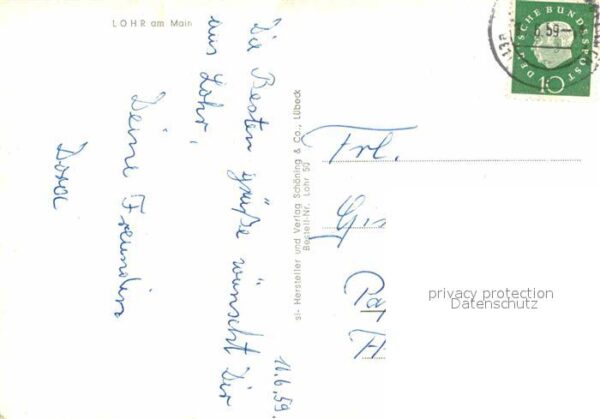 LOHR am Main
Die Besten grüße wünscht Dir
aus Lohr,
Deine Freundin
Dora
11.6.59.
si- Hersteller und Verlag Schöning & Co., Lübeck
Bestell-Nr. Lohr 50
Frl.
DEUTSCHE BUNDESPOST
10
6.59
privacy protection
Datenschutz